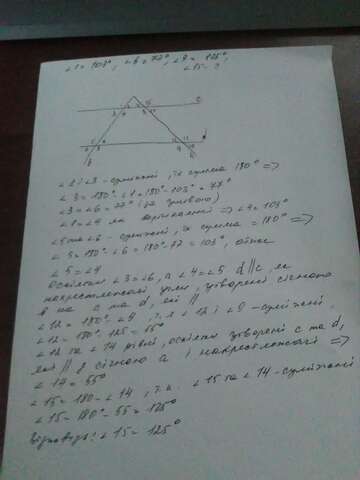 ∠1 = 103°, ∠6 = 77°, ∠9 = 125°,
∠15 - ?
c
d
b
a
∠1 і ∠3 - суміжні, їх сумма 180° =>
∠3 = 180° - ∠1 = 180° - 103° = 77°
∠3 = ∠6 = 77° (за умовою)
∠1 = ∠4 як вертикальні => ∠4 = 103°
∠5 та ∠6 - суміжні, їх сумма = 180° =>
∠5 = 180° - ∠6 = 180° - 77 = 103°, отже
∠5 = ∠4
Оскільки ∠3 = ∠6, а ∠4 = ∠5 d||c, як
накрестлежачі кути, утворені січною
в на c та d, які ||
∠12 = 180° - ∠9, т.к ∠12 і ∠9 - суміжні,
∠12 = 180° - 125 = 55°
∠12 та ∠14 рівні, оскільки утворені c та d,
які || й січною a і накрестлежачі =>
∠14 = 55°
∠15 = 180 - ∠14, т.к. ∠15 та ∠14 - суміжні
∠15 = 180° - 55 = 125°
Відповідь: ∠15 = 125°